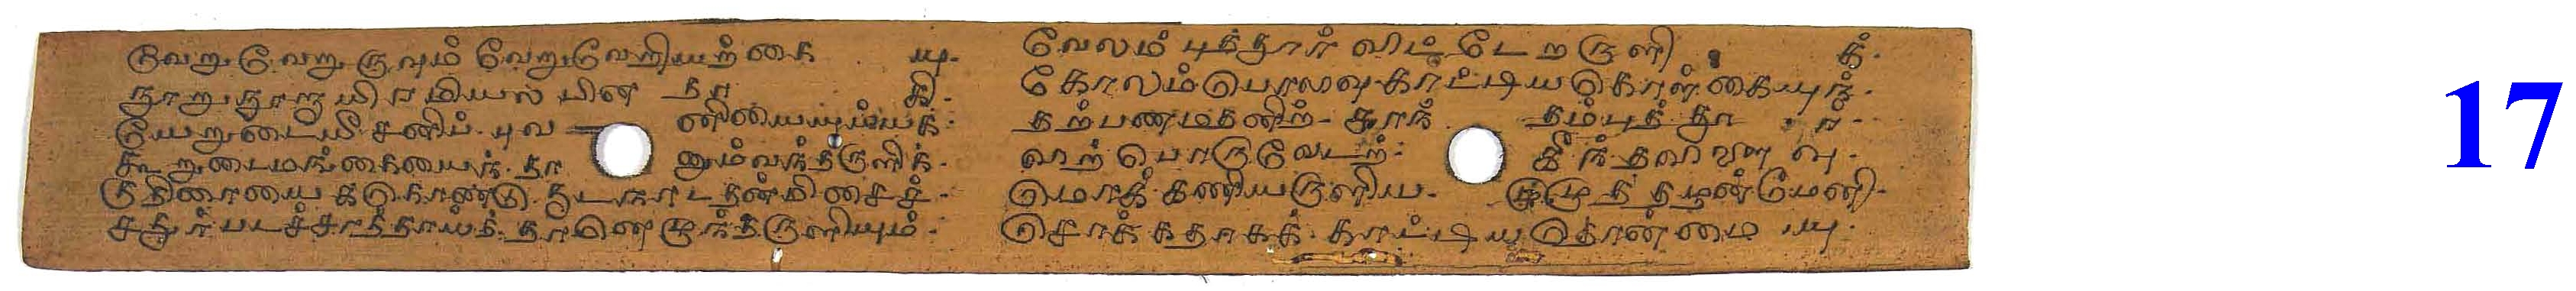 வேறுவேறுருவும் வேறுவேறியற்கை யு.
நூறுநூறாயிரமியல்பின தா கி.
யேறுடையீசனிப் புவ னியையுய்யக்.
கூறுடைமங்கையைந் தா னும்வந்தருளிக்.
குதிரையை க்கொண்டு குடநாடதன்மிசைச்.
சதுர்படச்சாத்தாய்த் தானெழுந்தருளியும்.
வேலம் புத்தூர் விட்டேறருளி க்.
கோலம்பொலிவுகாட்டியகொள்கையுந்.
தற்பணமதனிற் சாந் தம்புத்தூ ர்.
விற்பொருவேடற் கீந்தவிளைவு.
மொக்கணியருளிய முழுத்தழன்மேனி.
சொக்கதாகக் காட்டியதொன்மை யு.
17